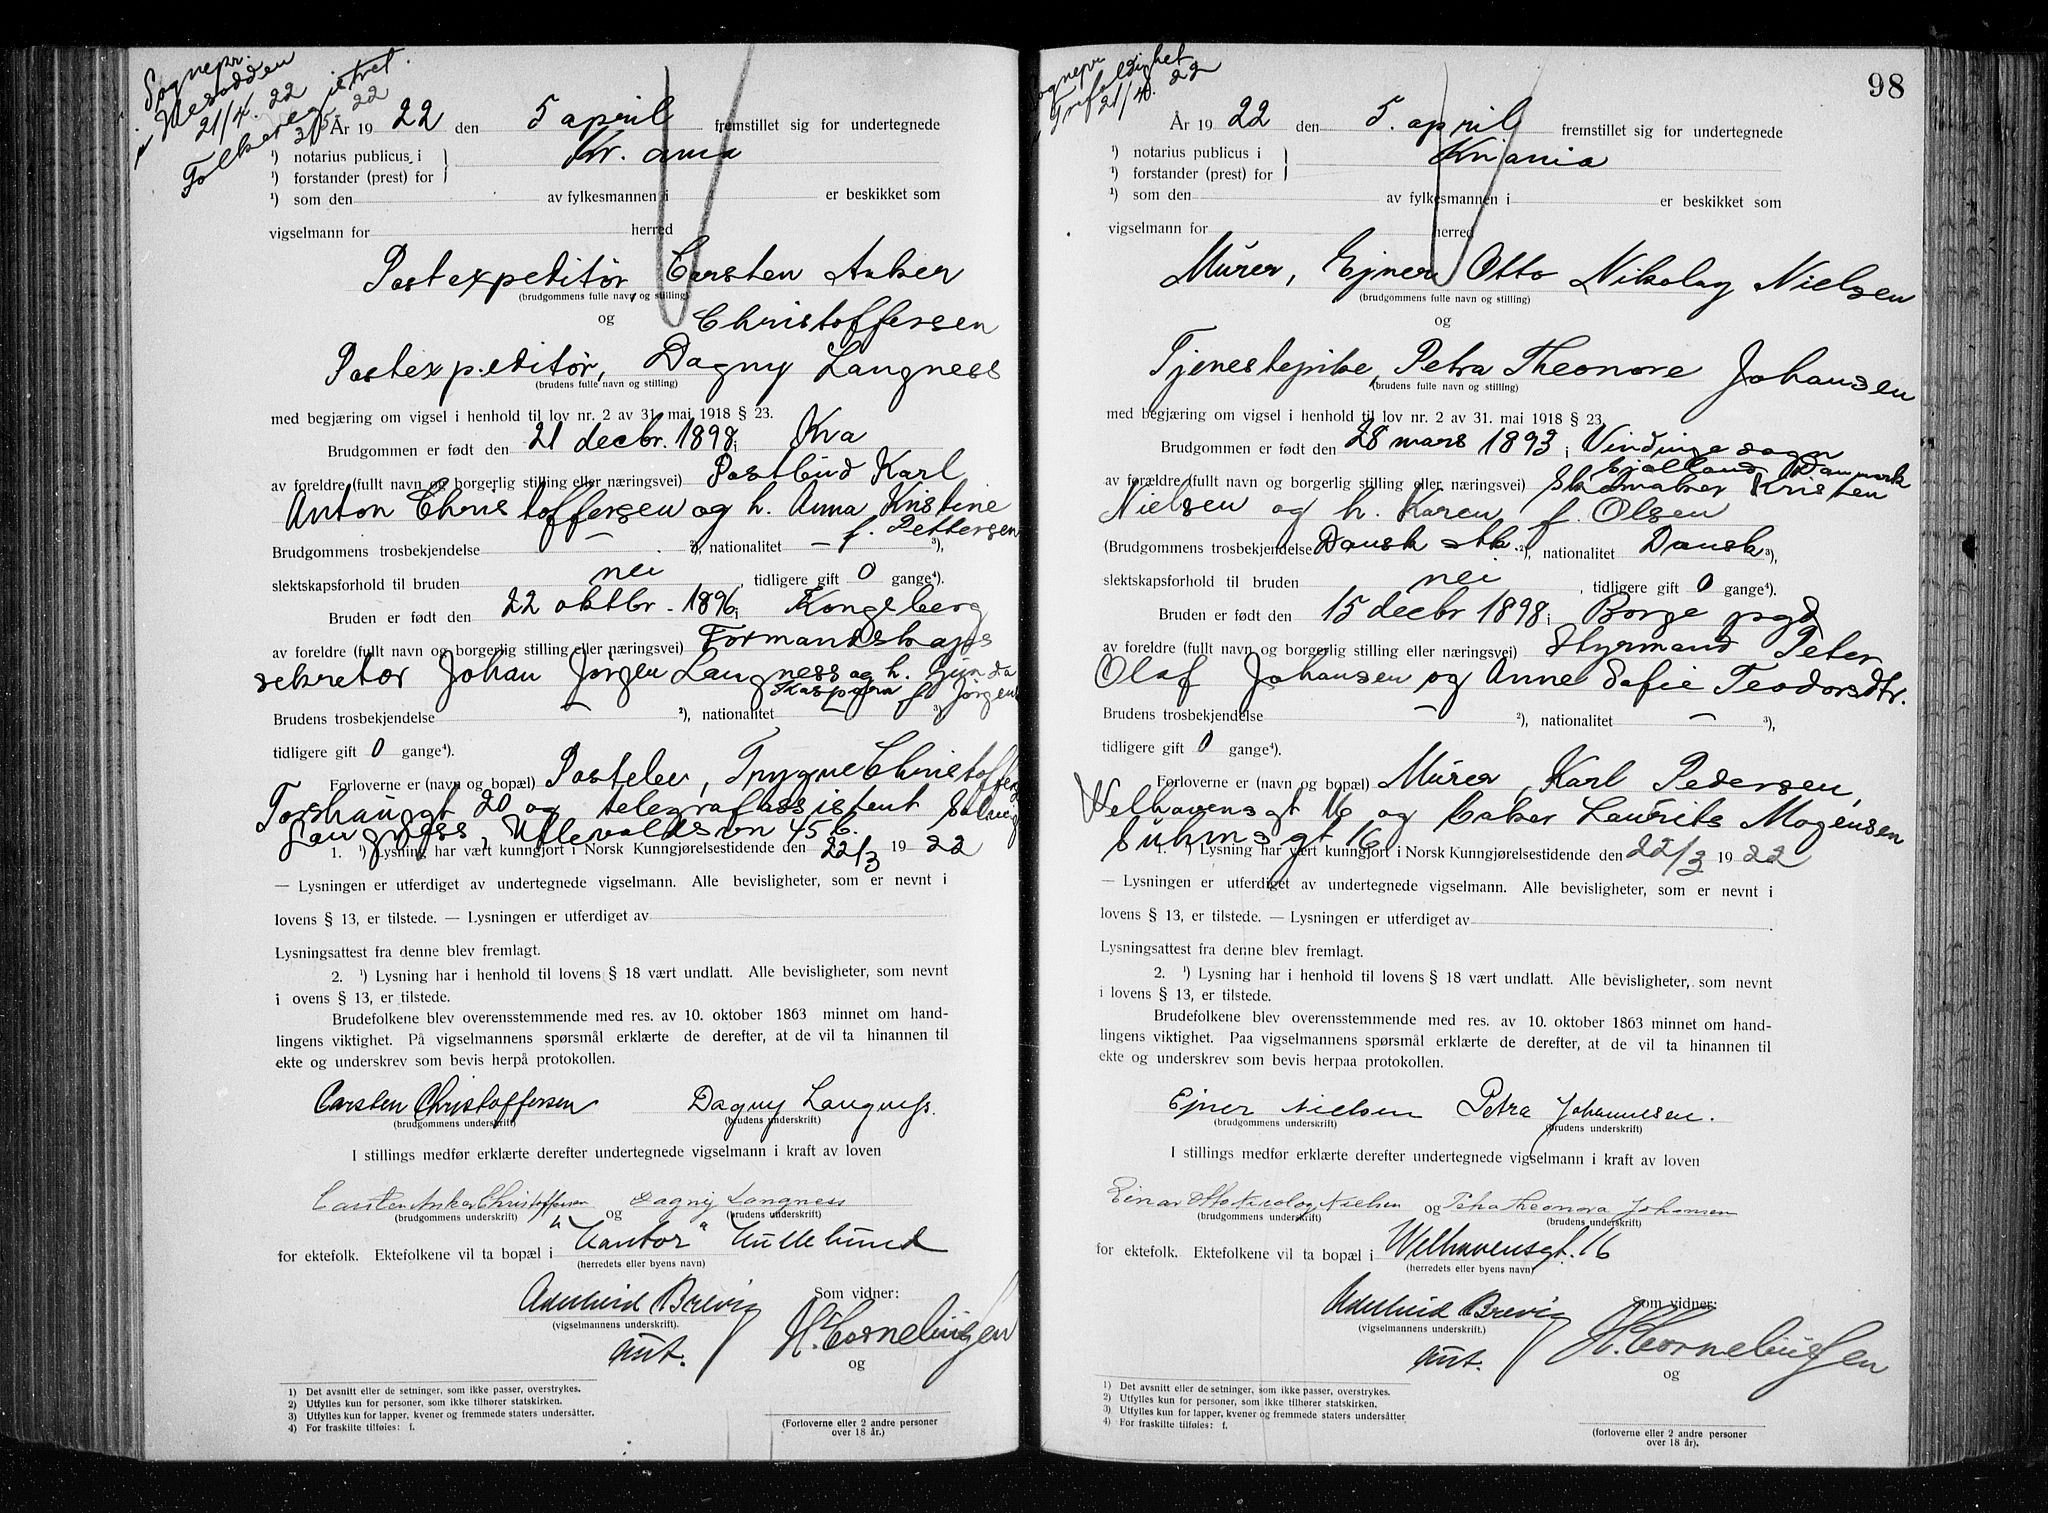 Sognepr.
Nesodden
21/4. 22
Folkeregistret.
3/5 22
År 19 22 den 5 april fremstillet sig for undertegnede
¹) notarius publicus i Kr.ania
¹) forstander (prest) for
¹) som den av fylkesmannen i er beskikket som
vigselmann for herred
Postexpeditør, Carsten Anker
(brudgommens fulle navn og stilling)
og Christoffersen
Postexpeditør, Dagny Langness
(brudens fulle navn og stilling)
med begjæring om vigsel i henhold til lov nr. 2 av 31. mai 1918 § 23.
Brudgommen er født den 21 decbr. 1898; Kra
av foreldre (fullt navn og borgerlig stilling eller næringsvei) Postbud Karl
Anton Christoffersen og h. Anna Kristine
f. Pettersen
Brudgommens trosbekjendelse — ²), nationalitet — ³),
slektskapsforhold til bruden nei, tidligere gift 0 gange⁴).
Bruden er født den 22 oktbr. 1896; Kongsberg
av foreldre (fullt navn og borgerlig stilling eller næringsvei) Formandskaps
sekretær Johan Jørgen Langness og h. Gunda
Kaspara f. Jørgens
Brudens trosbekjendelse — ²), nationalitet — ³)
tidligere gift 0 gange⁴).
Forloverne er (navn og bopæl) Postelev, Trygve Christoffers
Torshaugt 20 og telegrafassistent Solveig
Langness, Ullevoldsvn 45 b.
1. ¹) Lysning har vært kunngjort i Norsk Kunngjørelsestidende den 22/3 19 22
— Lysningen er utferdiget av undertegnede vigselmann. Alle bevisligheter, som er nevnt i
lovens § 13, er tilstede. — Lysningen er utferdiget av
Lysningsattest fra denne blev fremlagt.
2. ¹) Lysning har i henhold til lovens § 18 vært undlatt. Alle bevisligheter, som nevnt
i ovens § 13, er tilstede.
Brudefolkene blev overensstemmende med res. av 10. oktober 1863 minnet om hand-
lingens viktighet. På vigselmannens spørsmål erklærte de derefter, at de vil ta hinannen til
ekte og underskrev som bevis herpå protokollen.
Carsten Christoffersen Dagny Langness.
(brudgommens underskrift) (brudens underskrift)
I stillings medfør erklærte derefter undertegnede vigselmann i kraft av loven
Carsten Anker Christoffersen og Dagny Langness
(brudgommens underskrift) (brudens underskrift)
for ektefolk. Ektefolkene vil ta bopæl i "Kantor"
(herredets eller byens navn)
Brevig Som vidner:
(vigselmannens underskrift).
aut. H. Corneliussen
og
1) Det avsnitt eller de setninger, som ikke passer, overstrykes.
2) Utfylles kun for personer, som ikke tilhører statskirken.
3) Utfylles kun for lapper, kvener og fremmede staters undersåtter.
4) For fraskilte tilføies: f.
(Forloverne eller 2 andre personer
over 18 år.)
98
Sognepr
Trefoldighet
21/4. 22
År 19 22 den 5. april fremstillet sig for undertegnede
¹) notarius publicus i Krania
¹) forstander (prest) for
¹) som den av fylkesmannen i er beskikket som
vigselmann for herred
Murer, Ejner Otto Nikolay Nielsen
(brudgommens fulle navn og stilling)
og
Tjenestepike, Petra Theonore Johansen
(brudens fulle navn og stilling)
med begjæring om vigsel i henhold til lov nr. 2 av 31. mai 1918 § 23.
Brudgommen er født den 28 mars 1893; Vindinge sogn
Sjælland, Danmark
av forældre (fullt navn og borgerlig stilling eller næringsvei) Skomaker Kristen
Nielsen og h. Karen f. Olsen
(Brudgommens trosbekjendelse Dansk stk. ²), nationalitet Dansk ³),
slektskapsforhold til bruden nei, tidligere gift 0 gange⁴).
Bruden er født den 15 decbr 1898; Borge pgd
av foreldre (fullt navn og borgerlig stilling eller næringsvei) Styrmand Peter
Olaf Johansen og Anne Sofie Teodorsdtr.
Brudens trosbekjendelse — ²), nationalitet — ³),
tidligere gift 0 gange⁴).
Forloverne er (navn og bopæl) Murer, Karl Pedersen,
Welhavensgt 16 og baker Laurits Mogensen
Suhmsgt 16
1. ¹) Lysning har vært kunngjort i Norsk Kunngjørelsestidende den 22/3 19 22
— Lysningen er utferdiget av undertegnede vigselmann. Alle bevisligheter, som er nevnt i
lovens § 13, er tilstede. — Lysningen er utferdiget av
Lysningsattest fra denne blev fremlagt.
2. ¹) Lysning har i henhold til lovens § 18 vært undlatt. Alle bevisligheter, som nevnt
i lovens § 13, er tilstede.
Brudefolkene blev overensstemmende med res. av 10. oktober 1863 minnet om hand-
lingens viktighet. Paa vigselmannens spørsmål erklærte de derefter, at de vil ta hinannen til
ekte og underskrev som bevis herpaa protokollen.
Ejner Nielsen Petra Johannesen.
(brudgommens underskrift) (brudens underskrift)
I stillings medfør erklærte derefter undertegnede vigselmann i kraft av loven
Einar Otto Nicolay Nielsen og Petra Theonora Johansen
(brudgommens underskrift) (brudens underskrift)
for ektefolk. Ektefolkene vil ta bopæl i Welhavensgt. 16
(herredets eller byens navn)
Brevig Som vidner:
(vigselmannens underskrift.)
aut. H. Corneliussen
og
1) Det avsnitt eller de setninger, som ikke passer, overstrykes.
2) Utfylles kun for personer, som ikke tilhører statskirken.
3) Utfylles kun for lapper, kvener og fremmede staters undersåtter
4) For fraskilte tilføies: f.
(forloverne eller 2 andre personer
over 18 år).